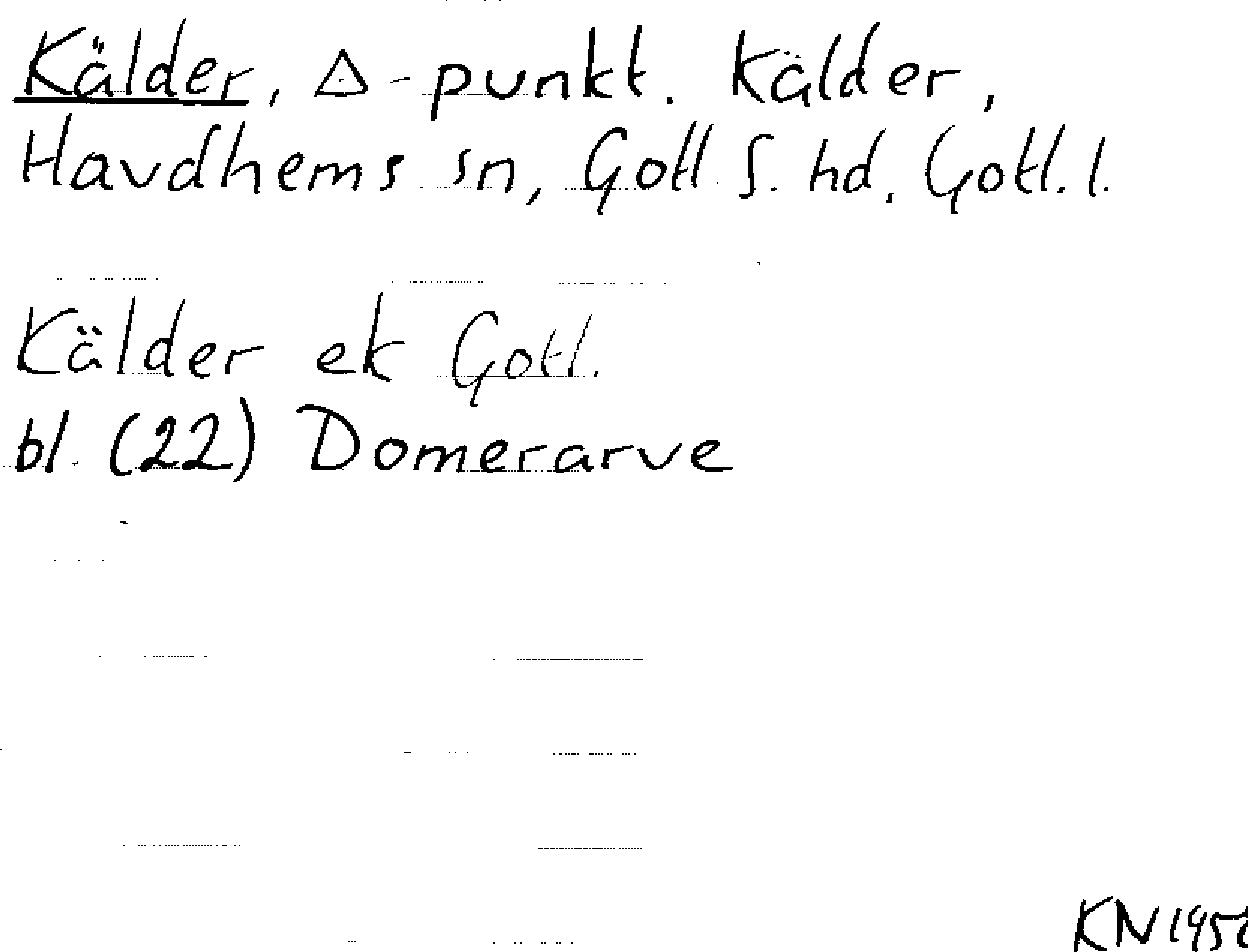 Kälder, △-punkt. Kälder,
Havdhems sn, Gotl S. hd, Gotl. l.
Kälder ek Gotl.
bl. (22) Domerarve
KN